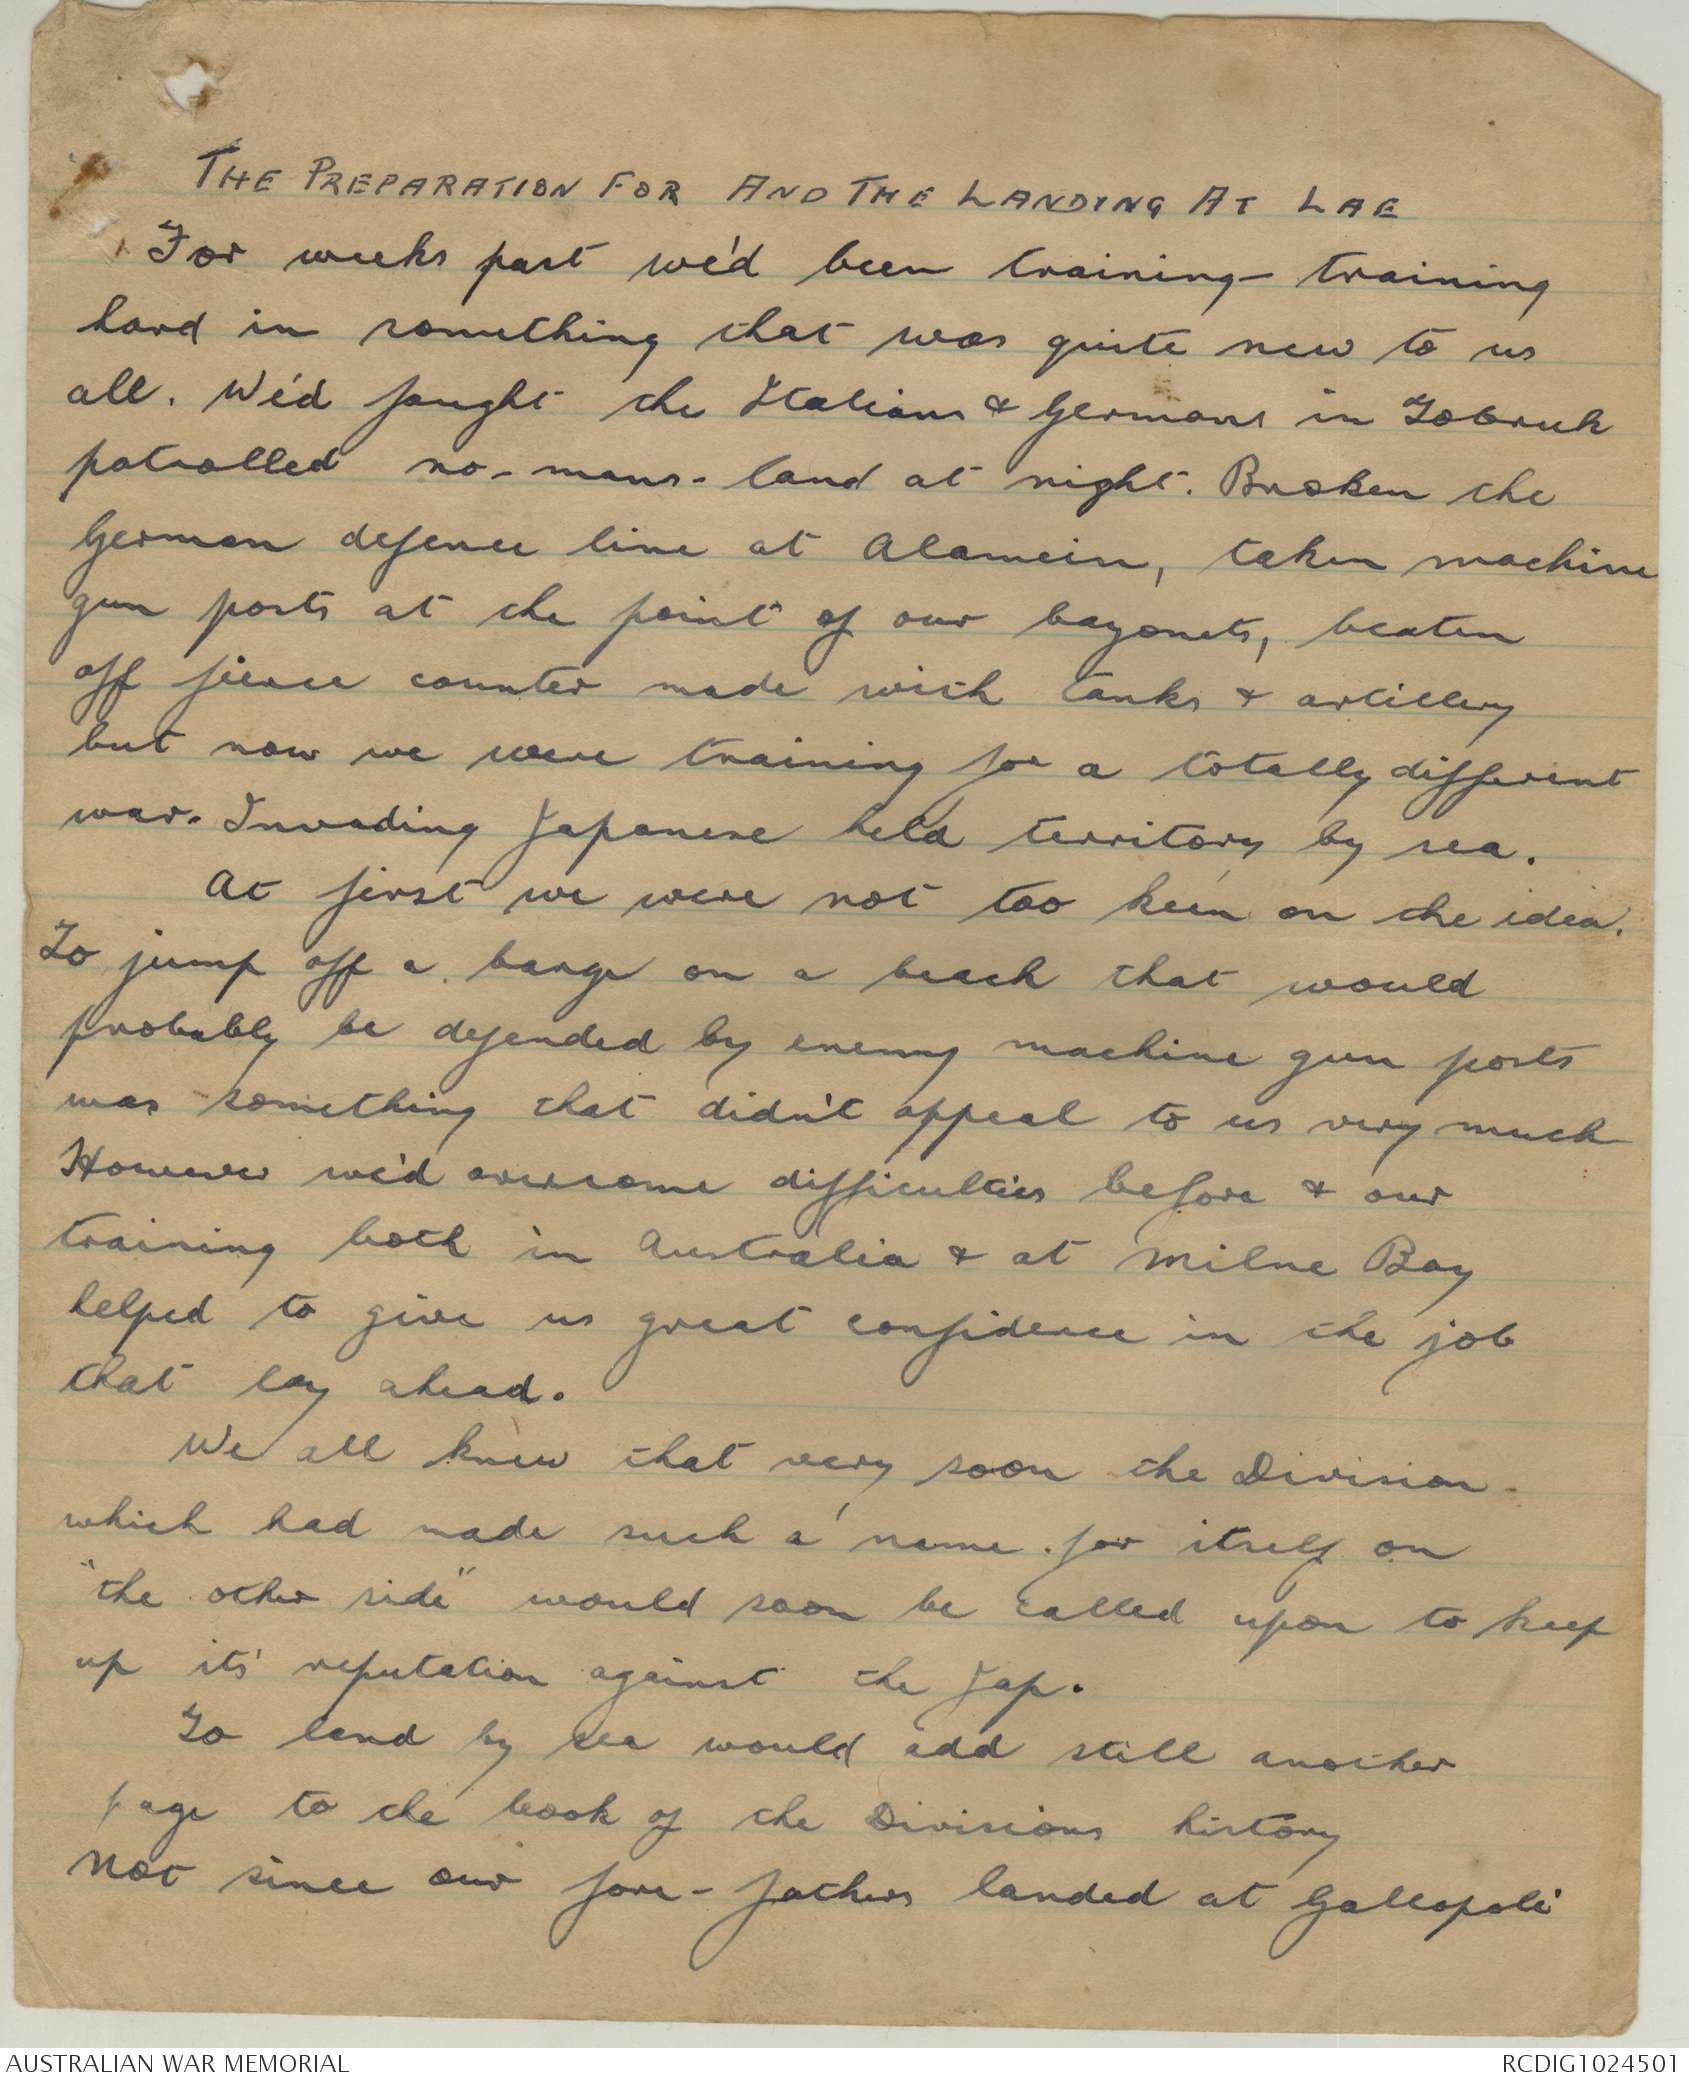 THE PREPARATION FOR AND THE LANDING AT LAE
For weeks past we'd been training - training
hard in something that was quite new to us
all. We'd fought the Italians & Germans in Tobruk
patrolled no-mans-land at night. Broken the
German defence line at Alamein, taken machine
gun posts at the point of our bayonets, beaten
off fierce counter made with tanks & artillery
but now we were training for a totally different
war. Invading Japanese held territory by sea.
At first we were not too keen on the idea.
To jump off a barge on a beach that would
probably be defended by enemy machine gun posts
was something that didn't appeal to us very much
However we'd overcome difficulties before & our
training both in Australia & at Milne Bay
helped to give us great confidence in the job
that lay ahead.
We all knew that very soon the Division
which had made such a name for itself on
"the other side" would soon be called upon to keep
up its' reputation against the Jap.
To land by sea would add still another
page to the book of the Divisions history
Not since our fore-fathers landed at Gallopoli
AUSTRALIAN WAR MEMORIAL
RCDIG1024501